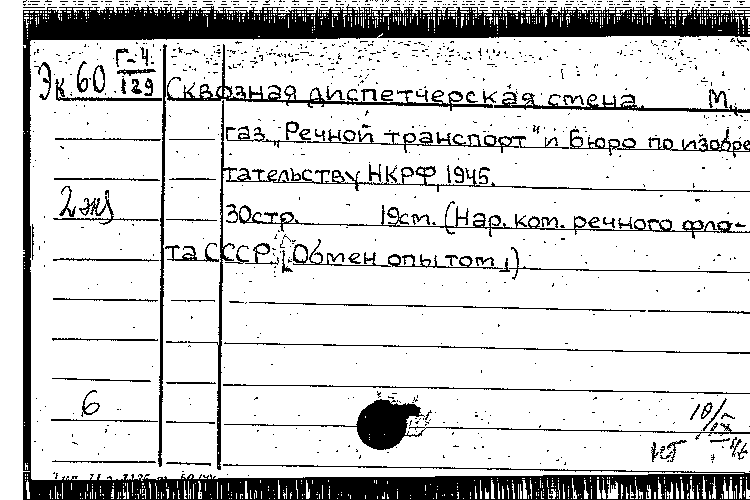 Эк.60 Г-4/129
Сквозная диспетчерская смена. М.,
газ. „Речной транспорт" и Бюро по изобре-
тательству НКРФ, 1945.
2 экз
30стр. 19см. (Нар. ком. речного фло-
та СССР. [Обмен опытом]).
6
10/
НТ